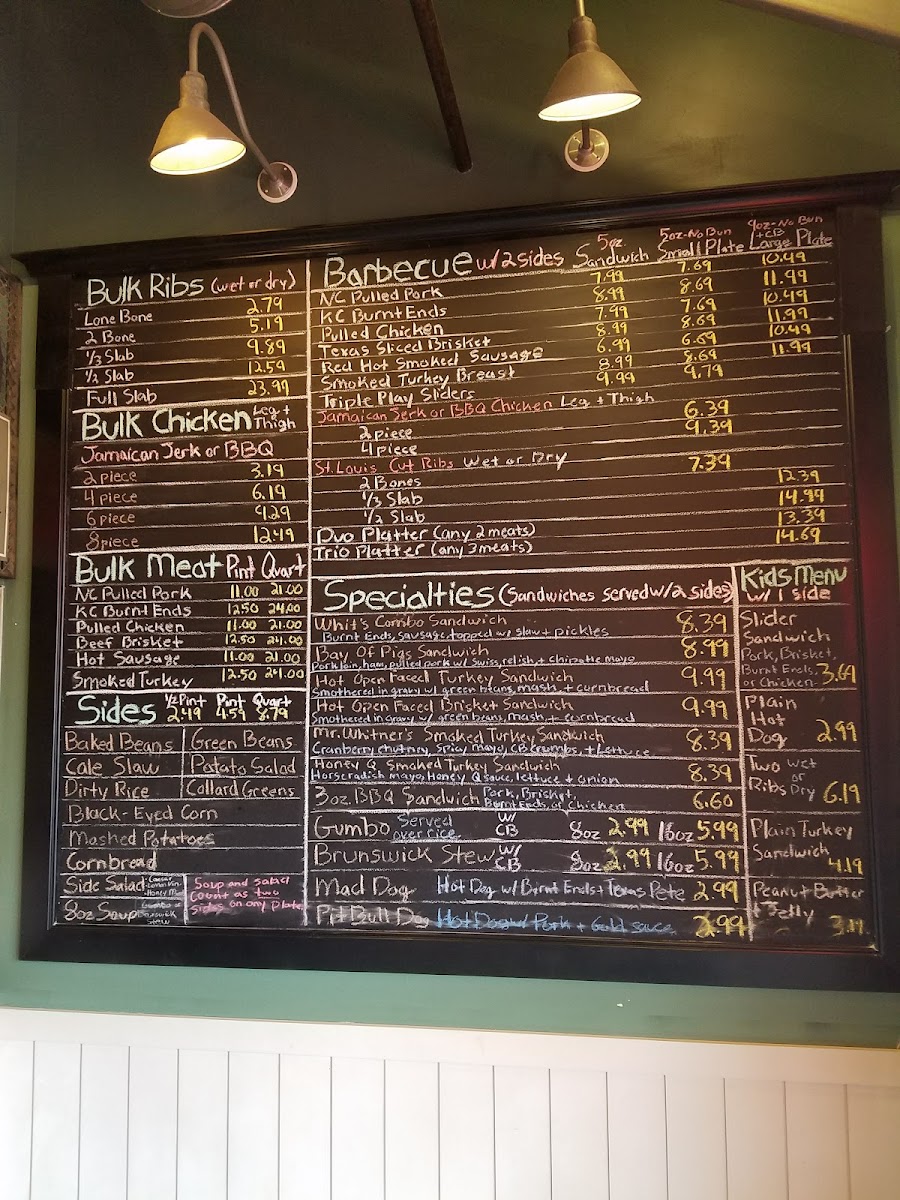 Bulk Ribs (wet or dry)
Lone Bone 2.79
2 Bone 5.19
1/3 Slab 9.89
1/2 Slab 12.59
Full Slab 23.99
Bulk Chicken Leg + Thigh
Jamaican Jerk or BBQ
2 piece 3.19
4 piece 6.19
6 piece 9.29
8 piece 12.49
Bulk Meat Pint Quart
NC Pulled Pork 11.00 21.00
KC Burnt Ends 12.50 24.00
Pulled Chicken 11.00 21.00
Beef Brisket 12.50 24.00
Hot Sausage 11.00 21.00
Smoked Turkey 12.50 24.00
Sides 1/2 Pint 2.49 Pint 4.59 Quart 8.79
Baked Beans Green Beans
Cale Slaw Potato Salad
Dirty Rice Collard Greens
Black-Eyed Corn
Mashed Potatoes
Cornbread
Side Salad -Caesar -Honey Mus
8oz Soup Gumbo or Brunswick Stew
Soup and salad
count as two
sides on any plate
Barbecue w/2 sides 5oz. Sandwich 5oz-No Bun Small Plate 9oz-No Bun +CB Large Plate
NC Pulled Pork 7.99 7.69 10.49
KC Burnt Ends 8.99 8.69 11.99
Pulled Chicken 7.99 7.69 10.49
Texas Sliced Brisket 8.99 8.69 11.99
Red Hot Smoked Sausage 6.99 6.69 10.49
Smoked Turkey Breast 8.99 8.69 11.99
Triple Play Sliders 9.99 9.79
Jamaican Jerk or BBQ Chicken Leg + Thigh
2 piece 6.39
4 piece 9.39
St. Louis Cut Ribs Wet or Dry
2 Bones 7.39
1/3 Slab 12.39
1/2 Slab 14.99
Duo Platter (any 2 meats) 13.39
Trio Platter (any 3 meats) 14.69
Specialties (Sandwiches served w/2 sides)
Whit's Combo Sandwich 8.39
Burnt Ends, Sausage, topped w/ slaw + pickles
Bay Of Pigs Sandwich 8.99
Pork loin, ham, pulled pork w/ swiss, relish, + chipotle mayo
Hot Open Faced Turkey Sandwich 9.99
Smothered in gravy w/ green beans, mash, + cornbread
Hot Open Faced Brisket Sandwich 9.99
Smothered in gravy w/ green beans, mash + cornbread
Mr. Whitner's Smoked Turkey Sandwich 8.39
Cranberry chutney, spicy mayo, CB crumbs, + lettuce
Honey Q Smoked Turkey Sandwich 8.39
Horseradish mayo, Honey Q sauce, lettuce + onion
3oz. BBQ Sandwich Pork, Brisket, Burnt Ends, or Chicken 6.60
Gumbo Served over rice w/ CB 8oz 2.99 16oz 5.99
Brunswick Stew w/ CB 8oz 2.99 16oz 5.99
Mad Dog Hot Dog w/ Burnt Ends + Texas Pete 2.99
Pit Bull Dog Hot Dog w/ Pork + Gold sauce 2.99
Kids Menu
w/ 1 side
Slider
Sandwich
Pork, Brisket,
Burnt Ends,
or Chicken 3.69
Plain
Hot
Dog 2.99
Two Wet
or
Ribs Dry 6.19
Plain Turkey
Sandwich
4.19
Peanut Butter
+ Jelly
3.19